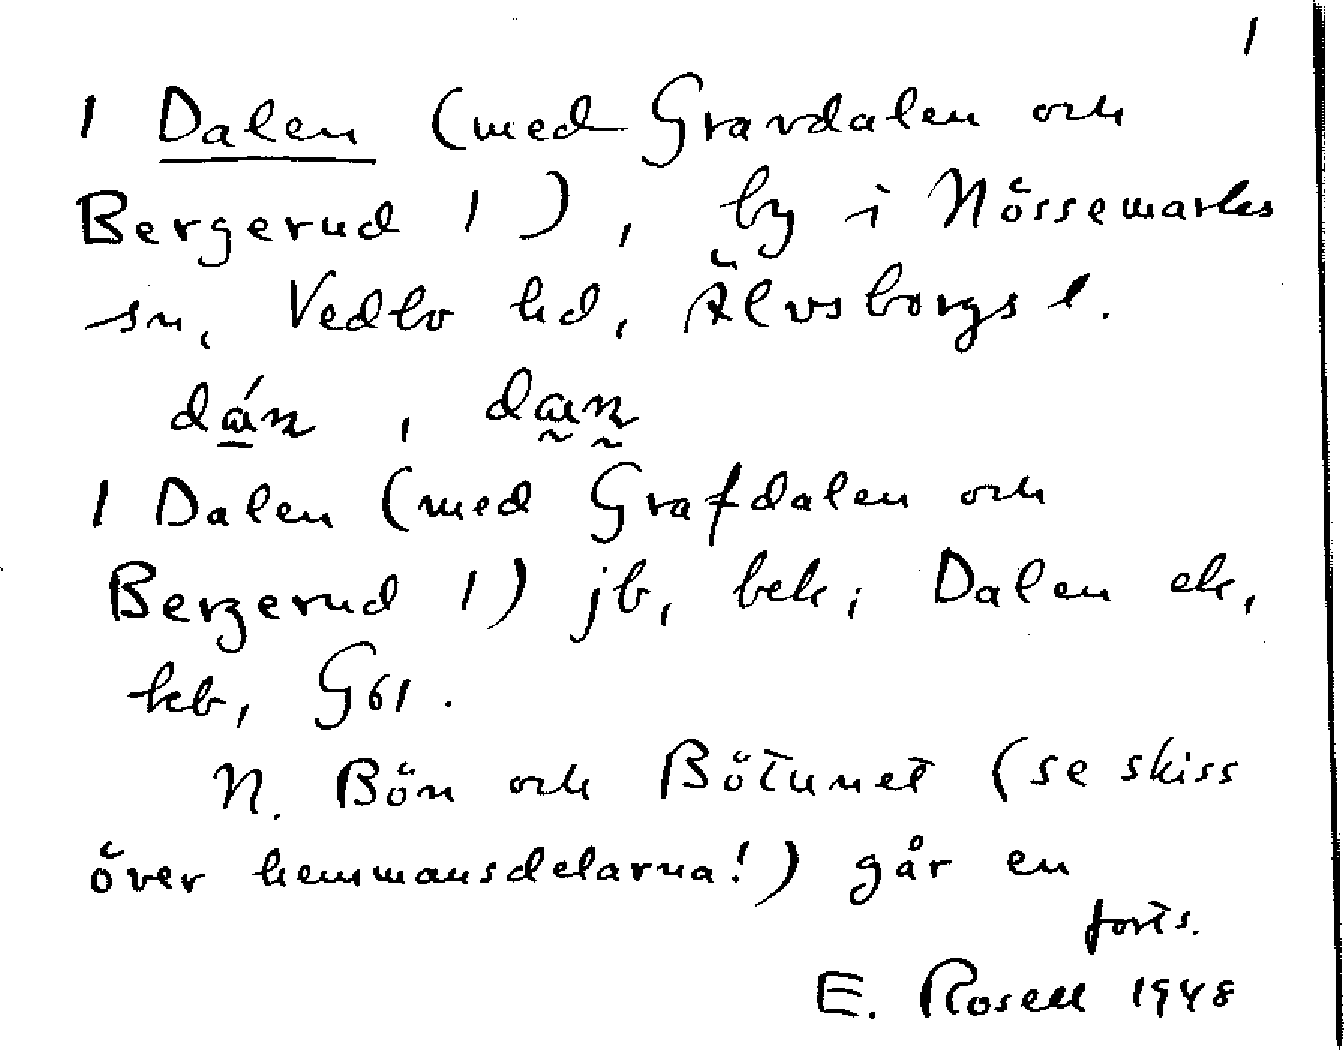 1
1 Dalen (med Gravdalen och
Bergerud 1), by i Nössemarks
sn, Vedbo hd, Älvsborgs l.
dán, dan
1 Dalen (med Grafdalen och
Bergerud 1) jb, bek; Dalen ek,
kb, G61.
N. Bön och Bötunet (se skiss
över hemmansdelarna!) går en
forts.
E. Rosell 1948